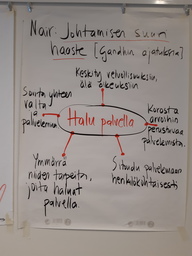 Nair: Johtamisen suuri
haaste [Gandhin ajatuksia]
Keskity velvollisuuksiin,
älä oikeuksiin
Suuta yhteen
valta
ja
palveleminen
Halu palvella
Korosta
arvoihin
perustuvaa
palvelemista.
Ymmärrä
niiden tarpeita,
joita haluat
palvella.
Sitoudu palvelemaan
henkilökohtaisesti